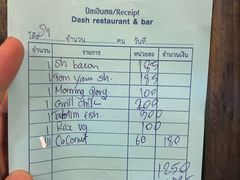 บิลเงินสด/Receipt
Dash restaurant & bar
โต๊ะ จำนวน คน วันที่
จำนวน รายการ หน่วยละ จำนวนเงิน
1 Sh bacon 185
1 Tom yam sh. 185
1 Morning glory 100
1 Grill chic 200
1 fish 300
1 Rice vg. 100
Coconut 60 180
1250